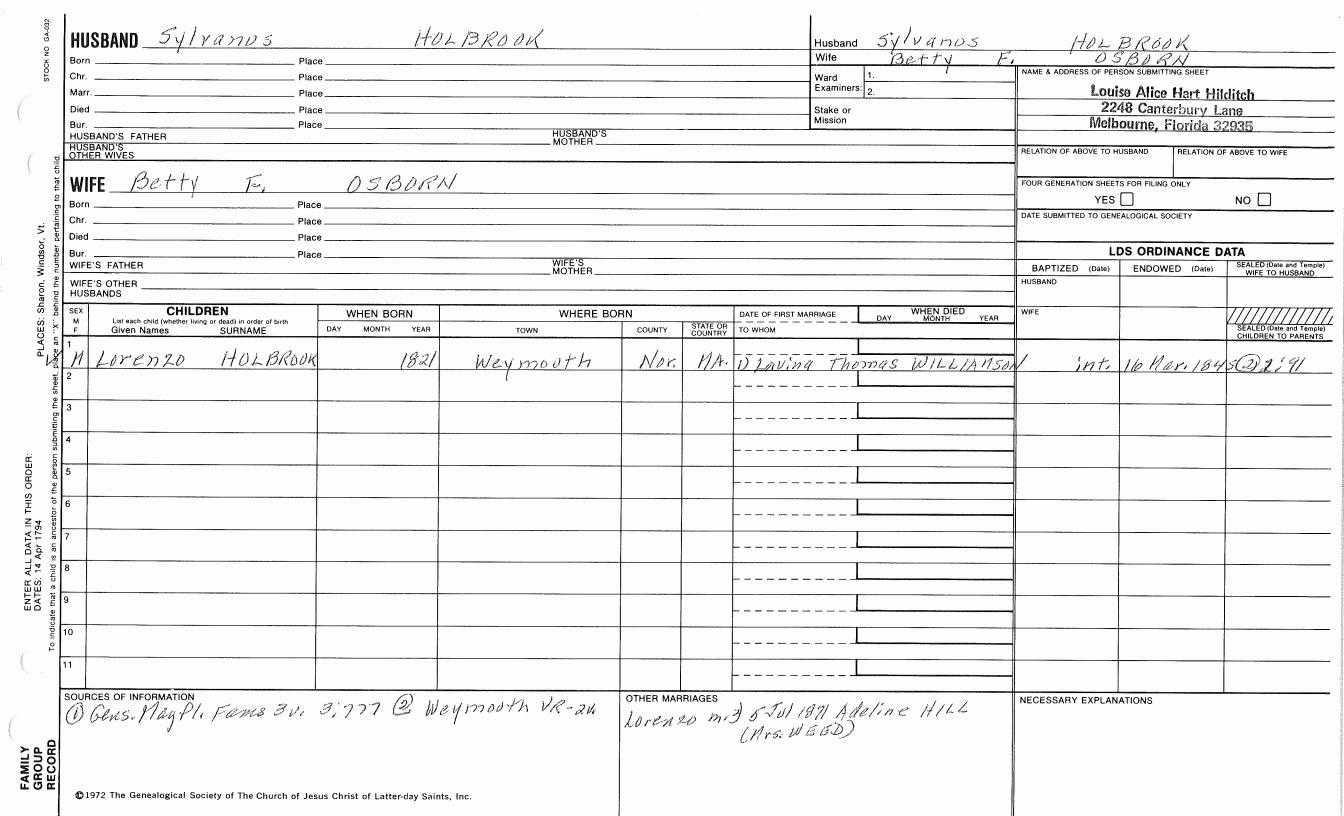 STOCK NO GA-032
HUSBAND Sylvanus HOLBROOK
Born Place
Chr. Place
Marr. Place
Died Place
Bur. Place
HUSBAND'S FATHER HUSBAND'S MOTHER
HUSBAND'S OTHER WIVES
WIFE Betty F. OSBORN
Born Place
Chr. Place
Died Place
Bur. Place
WIFE'S FATHER WIFE'S MOTHER
WIFE'S OTHER HUSBANDS
Husband Sylvanus HOLBROOK
Wife Betty F. OSBORN
Ward Examiners: 1.
2.
Stake or Mission
NAME & ADDRESS OF PERSON SUBMITTING SHEET
Louise Alice Hart Hilditch
2248 Canterbury Lane
Melbourne, Florida 32935
RELATION OF ABOVE TO HUSBAND RELATION OF ABOVE TO WIFE
FOUR GENERATION SHEETS FOR FILING ONLY
YES NO
DATE SUBMITTED TO GENEALOGICAL SOCIETY
LDS ORDINANCE DATA
BAPTIZED (Date) ENDOWED (Date) SEALED (Date and Temple) WIFE TO HUSBAND
HUSBAND
WIFE
SEALED (Date and Temple) CHILDREN TO PARENTS
SEX M F
CHILDREN
List each child (whether living or dead) in order of birth
Given Names SURNAME
WHEN BORN
DAY MONTH YEAR
WHERE BORN
TOWN COUNTY STATE OR COUNTRY
DATE OF FIRST MARRIAGE
TO WHOM
WHEN DIED
DAY MONTH YEAR
1
M Lorenzo HOLBROOK 1821 Weymouth Nor. MA. 1) Thomas WILLIAMSON int. 16 Mar. 1845 ② 2:91
2
3
4
5
6
7
8
9
10
11
SOURCES OF INFORMATION
① Gens. May Pl. Fams 3v. 3:777 ② Weymouth VR-2v
OTHER MARRIAGES
Lorenzo m. 5 Jul 1871 Adeline HILL
(Mrs. WEED)
NECESSARY EXPLANATIONS
©1972 The Genealogical Society of The Church of Jesus Christ of Latter-day Saints, Inc.
PLACES: Sharon, Windsor, Vt.
ENTER ALL DATA IN THIS ORDER:
DATES: 14 Apr 1794
To indicate that a child is an ancestor of the person submitting the sheet, place an "X" behind the number pertaining to that child.
FAMILY
GROUP
RECORD